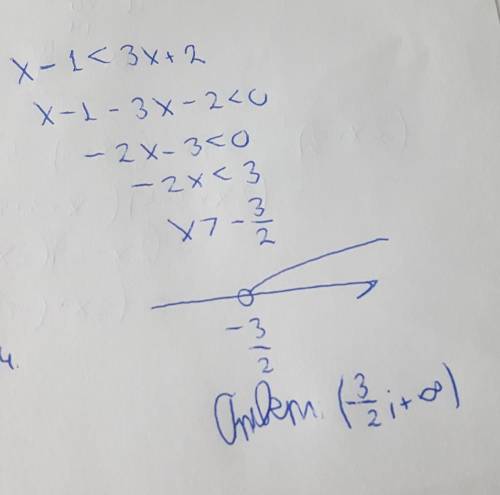 x - 1 < 3x + 2
x - 1 - 3x - 2 < 0
- 2x - 3 < 0
- 2x < 3
x > - 3/2
- 3/2
4.
Ответ: (-3/2; +∞)